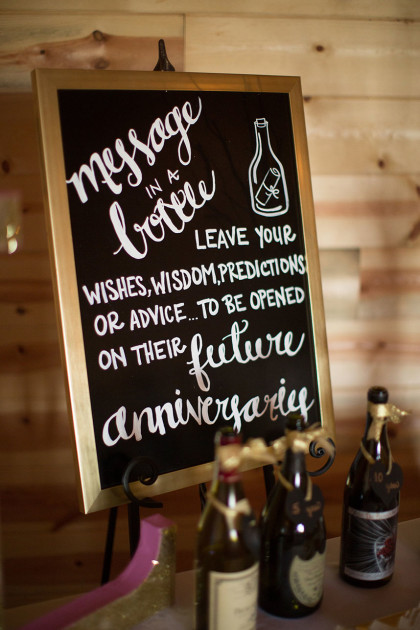 message
IN A
bottle
LEAVE YOUR
WISHES, WISDOM, PREDICTIONS
OR ADVICE... TO BE OPENED
ON THEIR future
anniversary
5
10